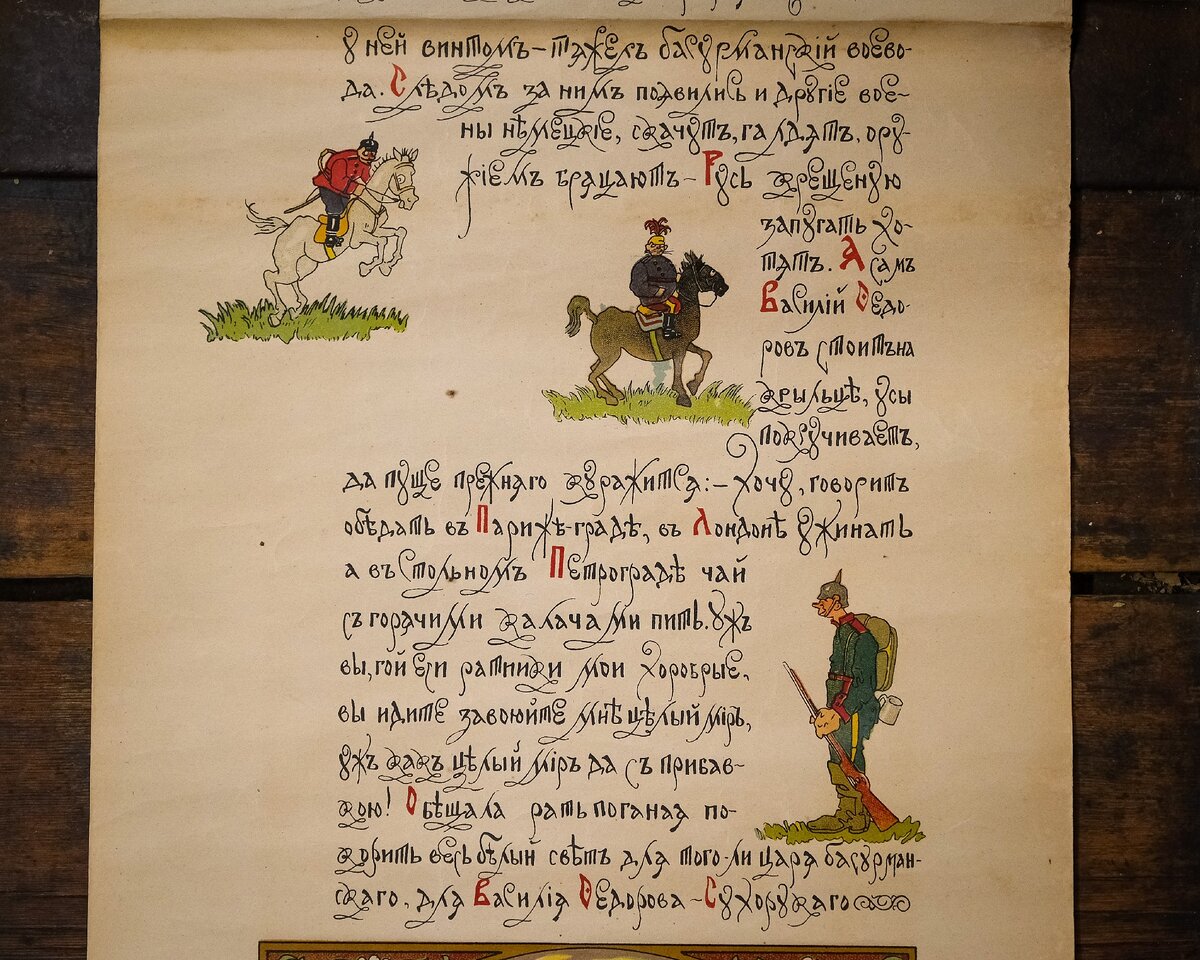 у ней винтомъ-тяжелъ басурманскій воево-
да. Слѣдомъ за нимъ появились и другіе вое-
ны нѣмецкіе, скачутъ, галдятъ, ору-
жіемъ бряцаютъ - Русь крещеную
запугать хо-
тятъ. А самъ
Василій Ѳедо-
ровъ стоитъ на
крыльцѣ, усы
подкручиваетъ,
да пуще прежняго куражится: - Хочу, говоритъ
обѣдать въ Парижѣ-градѣ, въ Лондонѣ ужинать
а въ стольномъ Петроградѣ чай
съ горячими калачами пить. Ужъ
вы, гой еси ратники мои хоробрые,
вы идите завоюйте мнѣ цѣлый міръ,
ужъ какъ цѣлый міръ да съ прибав-
кою! Обѣщала рать поганая по-
корить весь бѣлый свѣтъ для того-ли царя басурман-
скаго, для Василія Ѳедорова-Сухорукаго